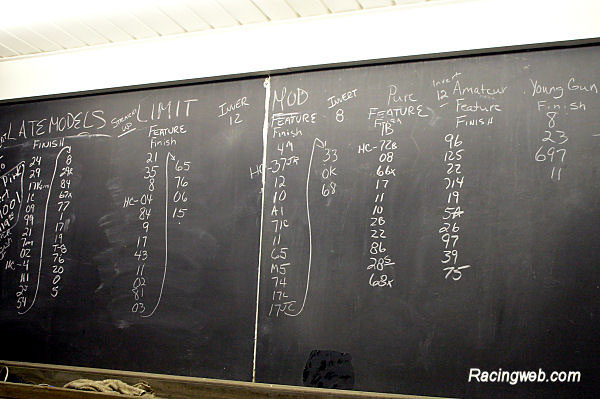 LATE MODELS
FINISH
24
29
17
1C
09
99
21
7m
02
HC-4
111
22
54
8
84
77
1
17
19
T-B
76
20
0
5
SPEEDED UP LIMIT
FEATURE
Finish
21
25
8
HC-04
84
9
17
43
11
02
81
03
65
76
06
15
INVER
12
MOD
FEATURE
Finish
4M
HC-37JR
12
10
A1
71C
11
65
M5
74
17C
17JC
33
OK
68
INVERT
8
Pure
FEATURE
7B
HC-72B
08
66x
17
11
10
2B
22
86
28S
68x
Invert
12 Amateur
Feature
FINISH
96
125
22
714
19
5A
26
97
39
75
Young Gun
Finish
8
23
697
11
Racingweb.com